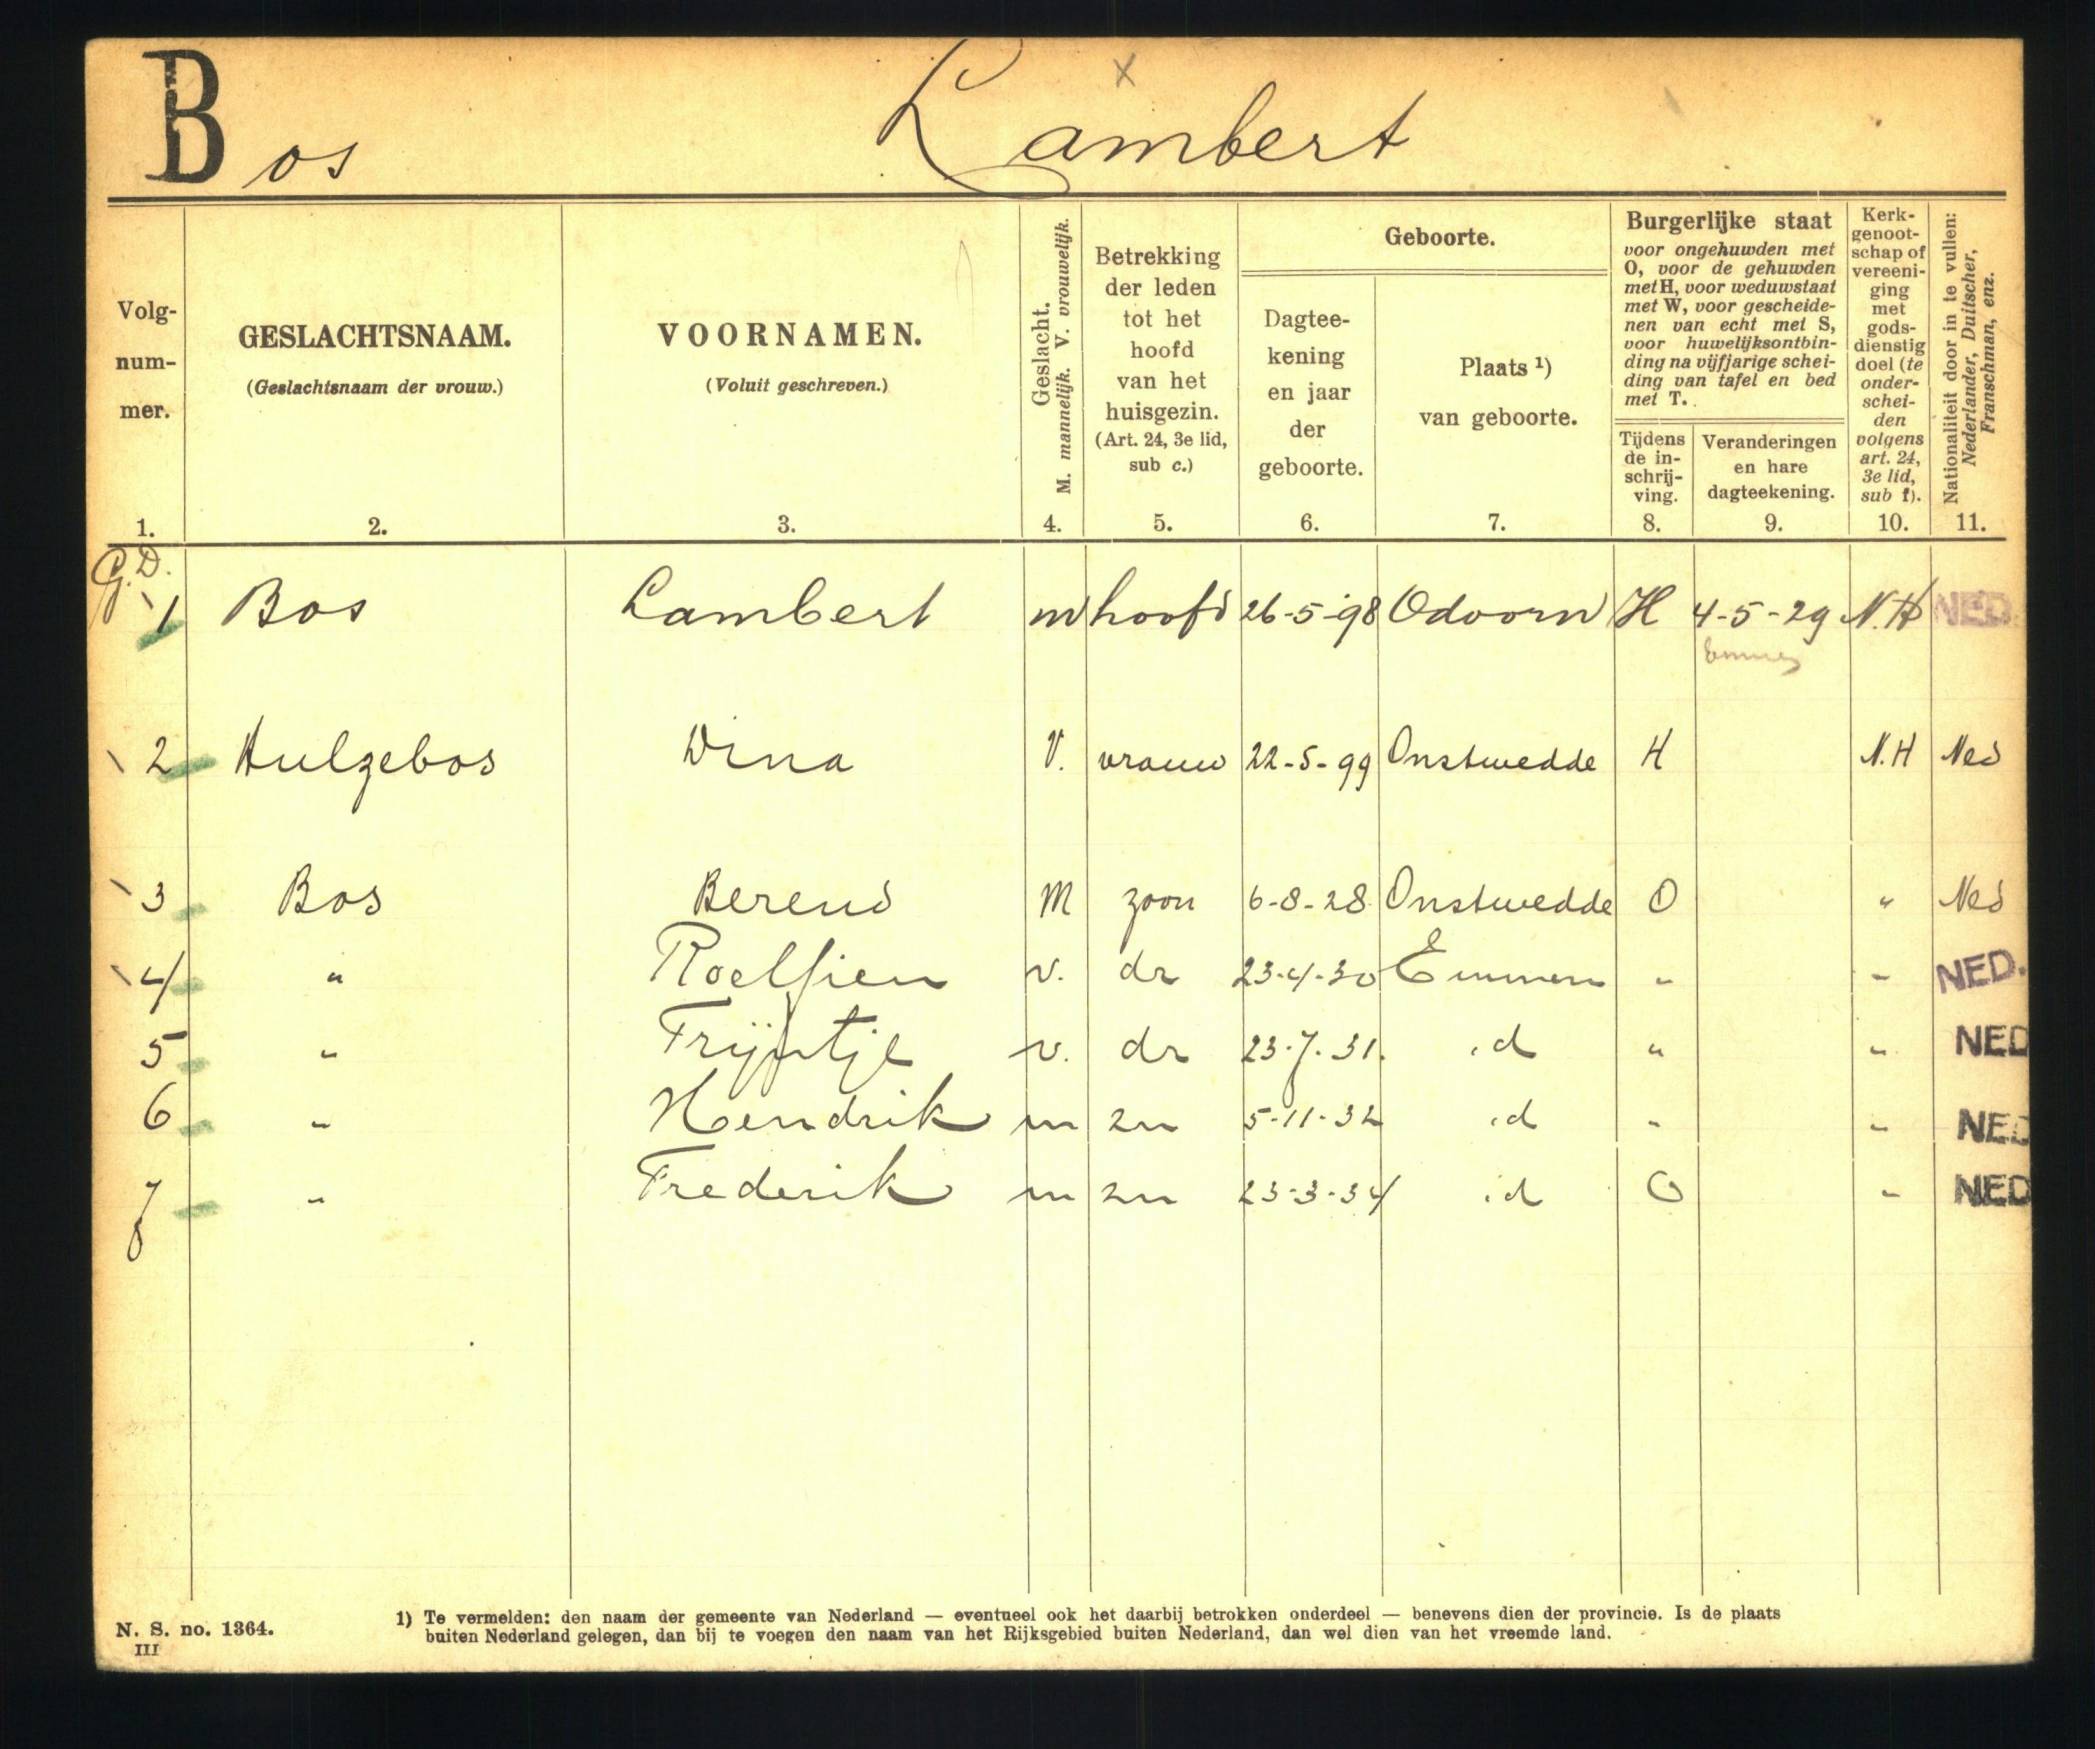 Bos Lambert
Volg-
num-
mer.
1.
GESLACHTSNAAM.
(Geslachtsnaam der vrouw.)
2.
VOORNAMEN.
(Voluit geschreven.)
3.
Geslacht.
M. mannelijk. V. vrouwelijk.
4.
Betrekking
der leden
tot het
hoofd
van het
huisgezin.
(Art. 24, 3e lid,
sub c.)
5.
Geboorte.
Dagtee-
kening
en jaar
der
geboorte.
6.
Plaats ¹)
van geboorte.
7.
Burgerlijke staat
voor ongehuwden met
O, voor de gehuwden
met H, voor weduwstaat
met W, voor gescheide-
nen van echt met S,
voor huwelijksontbin-
ding na vijfjarige schei-
ding van tafel en bed
met T.
Tijdens
de in-
schrij-
ving.
8.
Veranderingen
en hare
dagteekening.
9.
Kerk-
genoot-
schap of
vereeni-
ging
met
gods-
dienstig
doel (te
onder-
schei-
den
volgens
art. 24,
3e lid,
sub f).
10.
Nationaliteit door in te vullen:
Nederlander, Duitscher,
Franschman, enz.
11.
G.D.
1 Bos Lambert m hoofd 26-5-98 Odoorn H 4-5-29 N.H NED.
2 Hulzebos Dina V. vrouw 22-5-99 Onstwedde H N.H Ned
3 Bos Berend M zoon 6-8-28 Onstwedde O " Ned
4 " Roelfien v. dr 23-4-30 Emmen " " NED.
5 " Frijntje v. dr 23-7-31. id " " NED
6 " Hendrik m zn 5-11-32 id " " NED
7 " Frederik m zn 23-3-34 id O " NED
8
N. S. no. 1364.
III
1) Te vermelden: den naam der gemeente van Nederland — eventueel ook het daarbij betrokken onderdeel — benevens dien der provincie. Is de plaats
buiten Nederland gelegen, dan bij te voegen den naam van het Rijksgebied buiten Nederland, dan wel dien van het vreemde land.